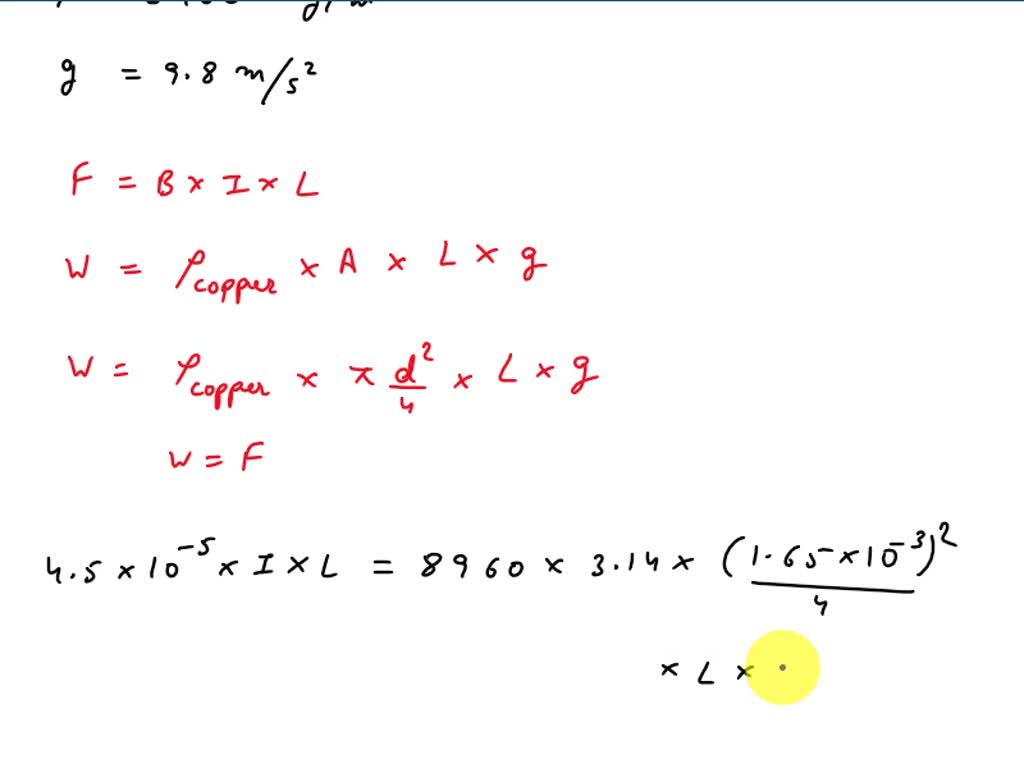 g = 9.8 m/s²
F = B × I × L
W = ρcopper × A × L × g
W = ρcopper × π d²/4 × L × g
W = F
4.5 × 10⁻⁵ × I × L = 8960 × 3.14 × (1.65 × 10⁻³)²/4
× L ×